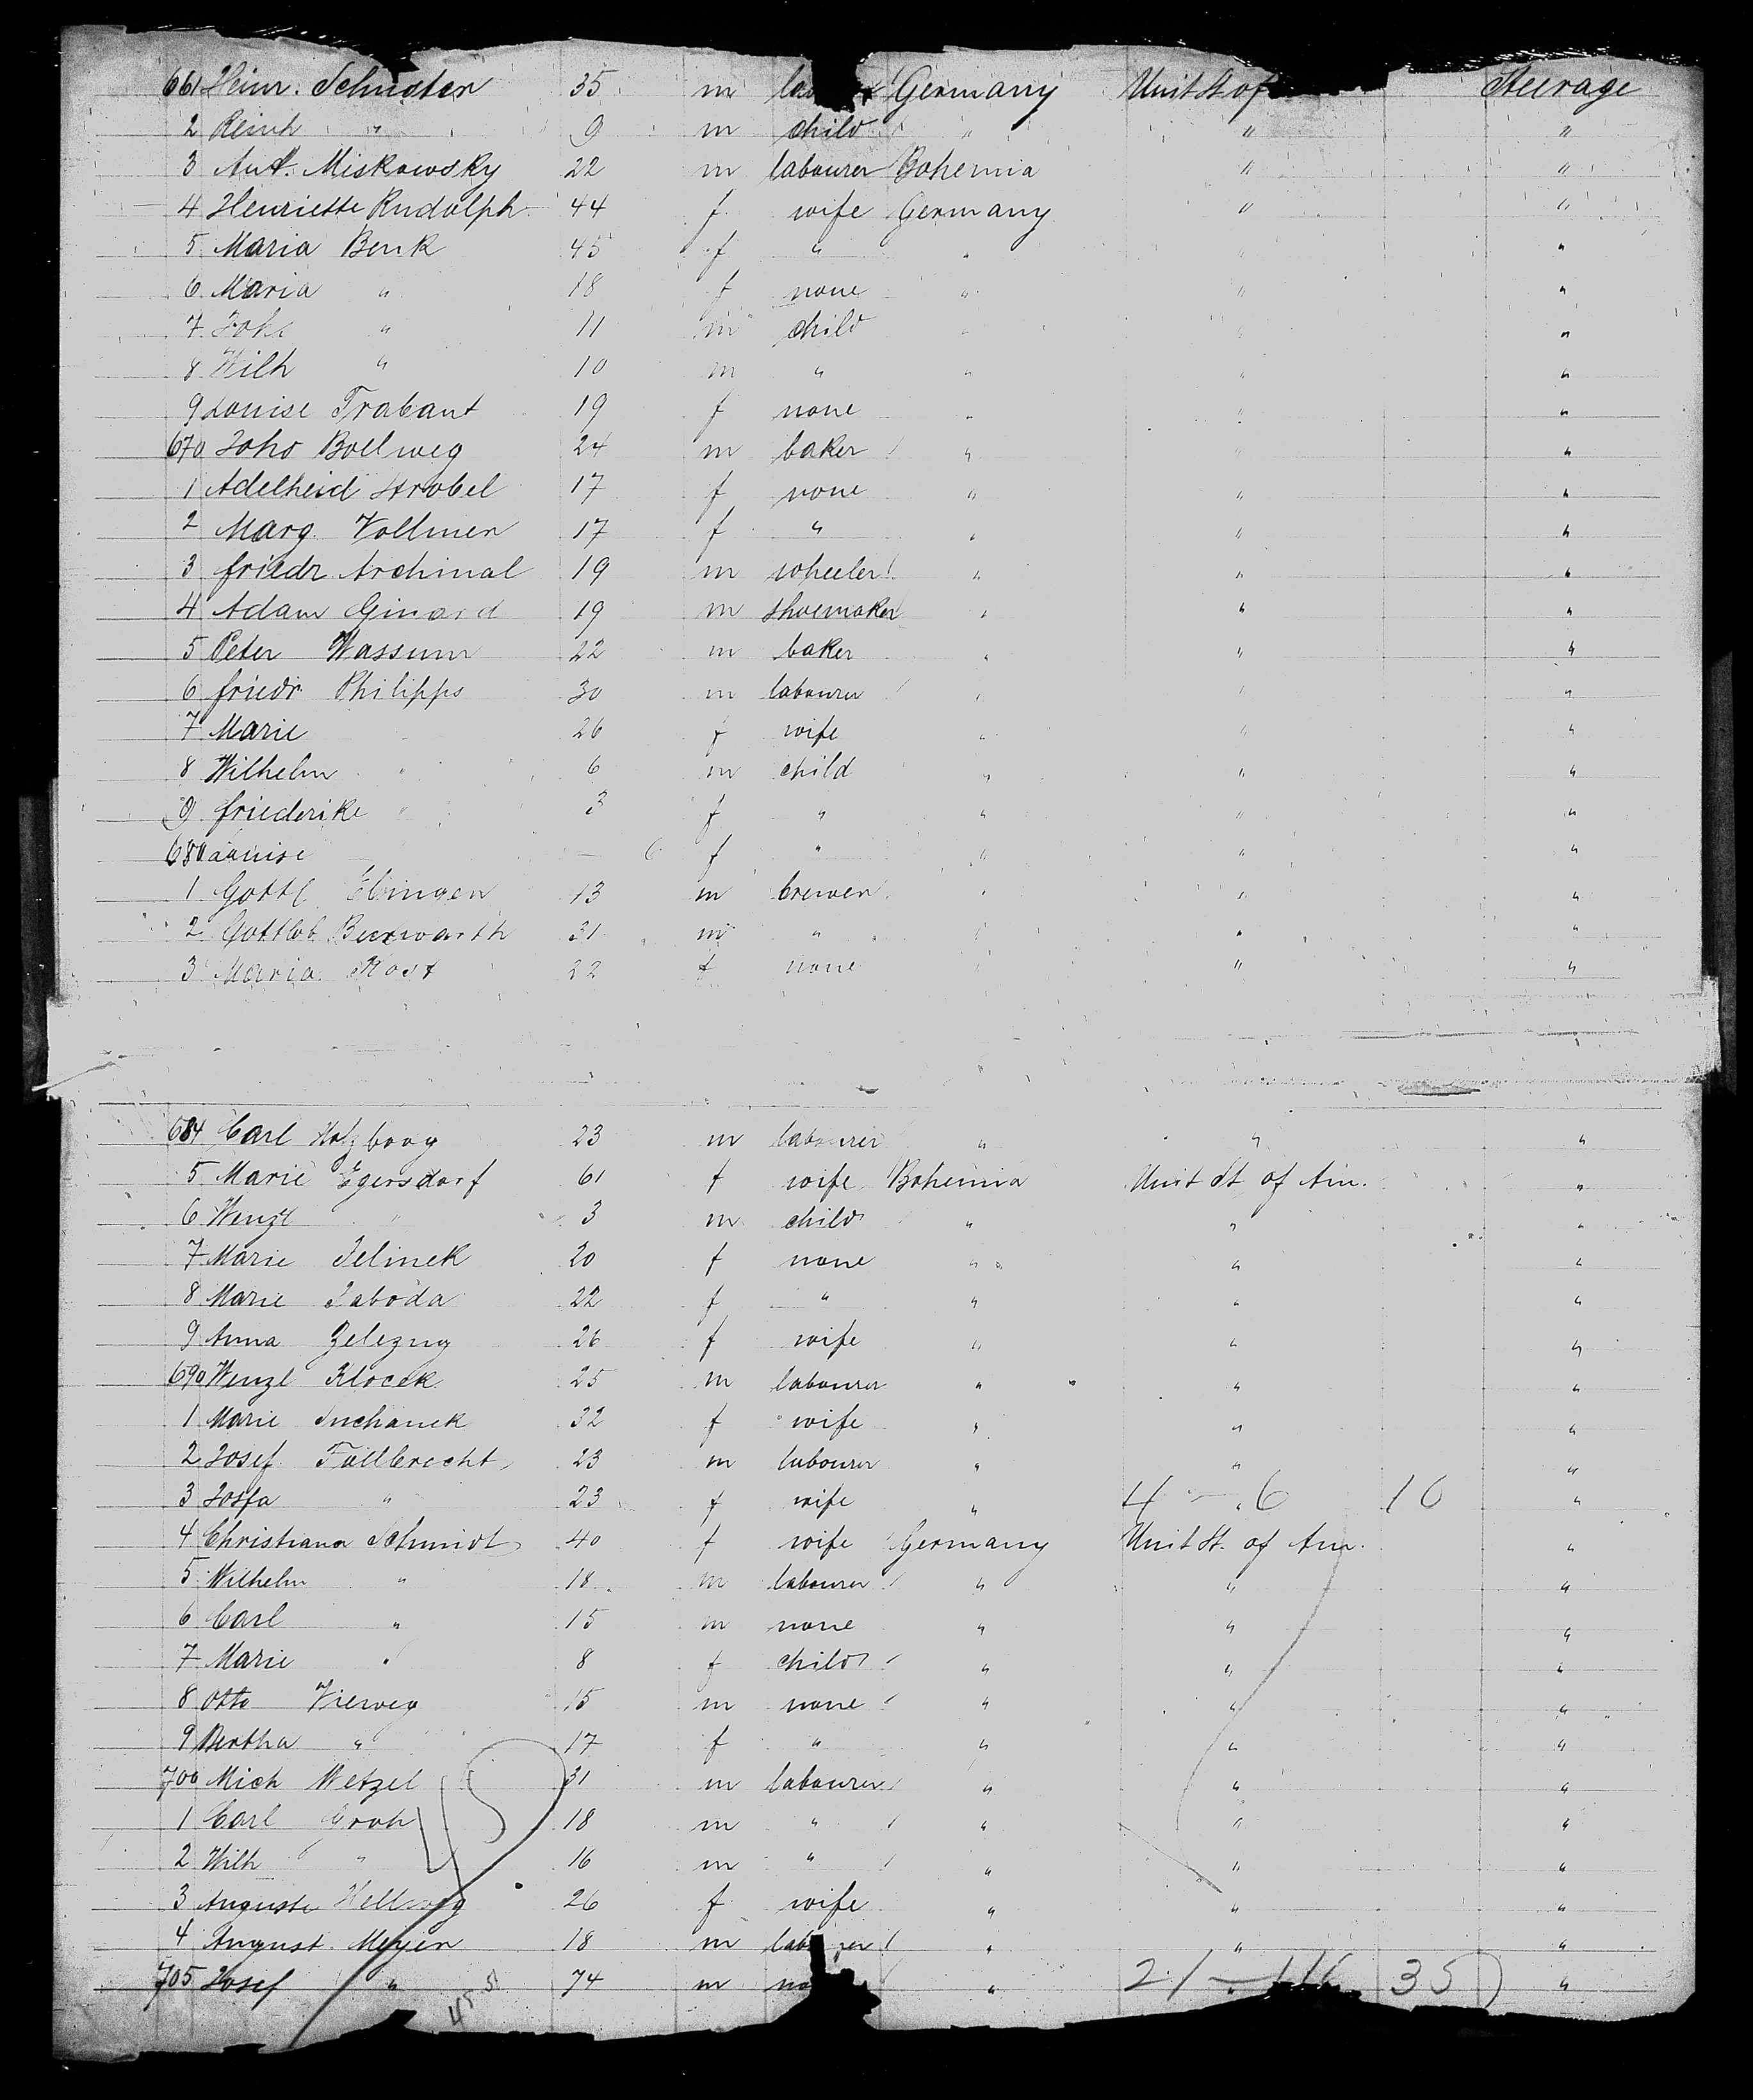 661 Heinr. Schuster 35 m Germany Unit St of Steerage
2 Reinh " 9 m child " " "
3 Ant. Miskowsky 22 m labourer Bohemia " "
4 Henriette Rudolph 44 f wife Germany " "
5 Maria Benk 45 f " " " "
6 Maria " 18 f none " " "
7 Joh " 11 m child " " "
8 Wilh " 10 m " " " "
9 Louise Trabant 19 f none " " "
670 Johs Bollweg 24 m baker " " "
1 Adelheid Strobel 17 f none " " "
2 Marg. Vollmer 17 f " " " "
3 friedr Archinal 19 m wheeler " " "
4 Adam Ginard 19 m shoemaker " " "
5 Peter Wassum 22 m baker " " "
6 friedr. Philipps 30 m labourer " " "
7 Marie 26 f wife " " "
8 Wilhelm " 6 m child " " "
9 friederike " 3 f " " " "
680 Louise — 6 f " " " "
1 Gottl Ebinger 13 m brewer " " "
2 Gottlob 31 m " " " "
3 Maria Rost 22 f none " " "
684 Carl Holzboog 23 m labourer " " "
5 Marie Egersdorf 61 f wife Bohemia Unit St of Am. "
6 Wenzl " 3 m child " " "
7 Marie Jelinek 20 f none " " "
8 Marie Saboda 22 f " " " "
9 Anna Zelezny 26 f wife " " "
690 Wenzl Klocek 25 m labourer " " "
1 Marie Suchanek 32 f wife " " "
2 Josef Fallbrecht 23 m labourer " " "
3 Josfa " 23 f wife " 4 — 6 10 "
4 Christiana Schmidt 40 f wife Germany Unit St. of Am. "
5 Wilhelm " 18 m labourer " " "
6 Carl " 15 m none " " "
7 Marie " 8 f child " " "
8 Otto Vierweg 15 m none " " "
9 Bertha " 17 f " " " "
700 Mich Wetzel 31 m labourer " " "
1 Carl Groh 18 m " " " "
2 Wilh " 16 m " " " "
3 Auguste Hellweg 26 f wife " " "
4 August Meyer 18 m labourer " " "
705 Josef " 74 m " 35 "